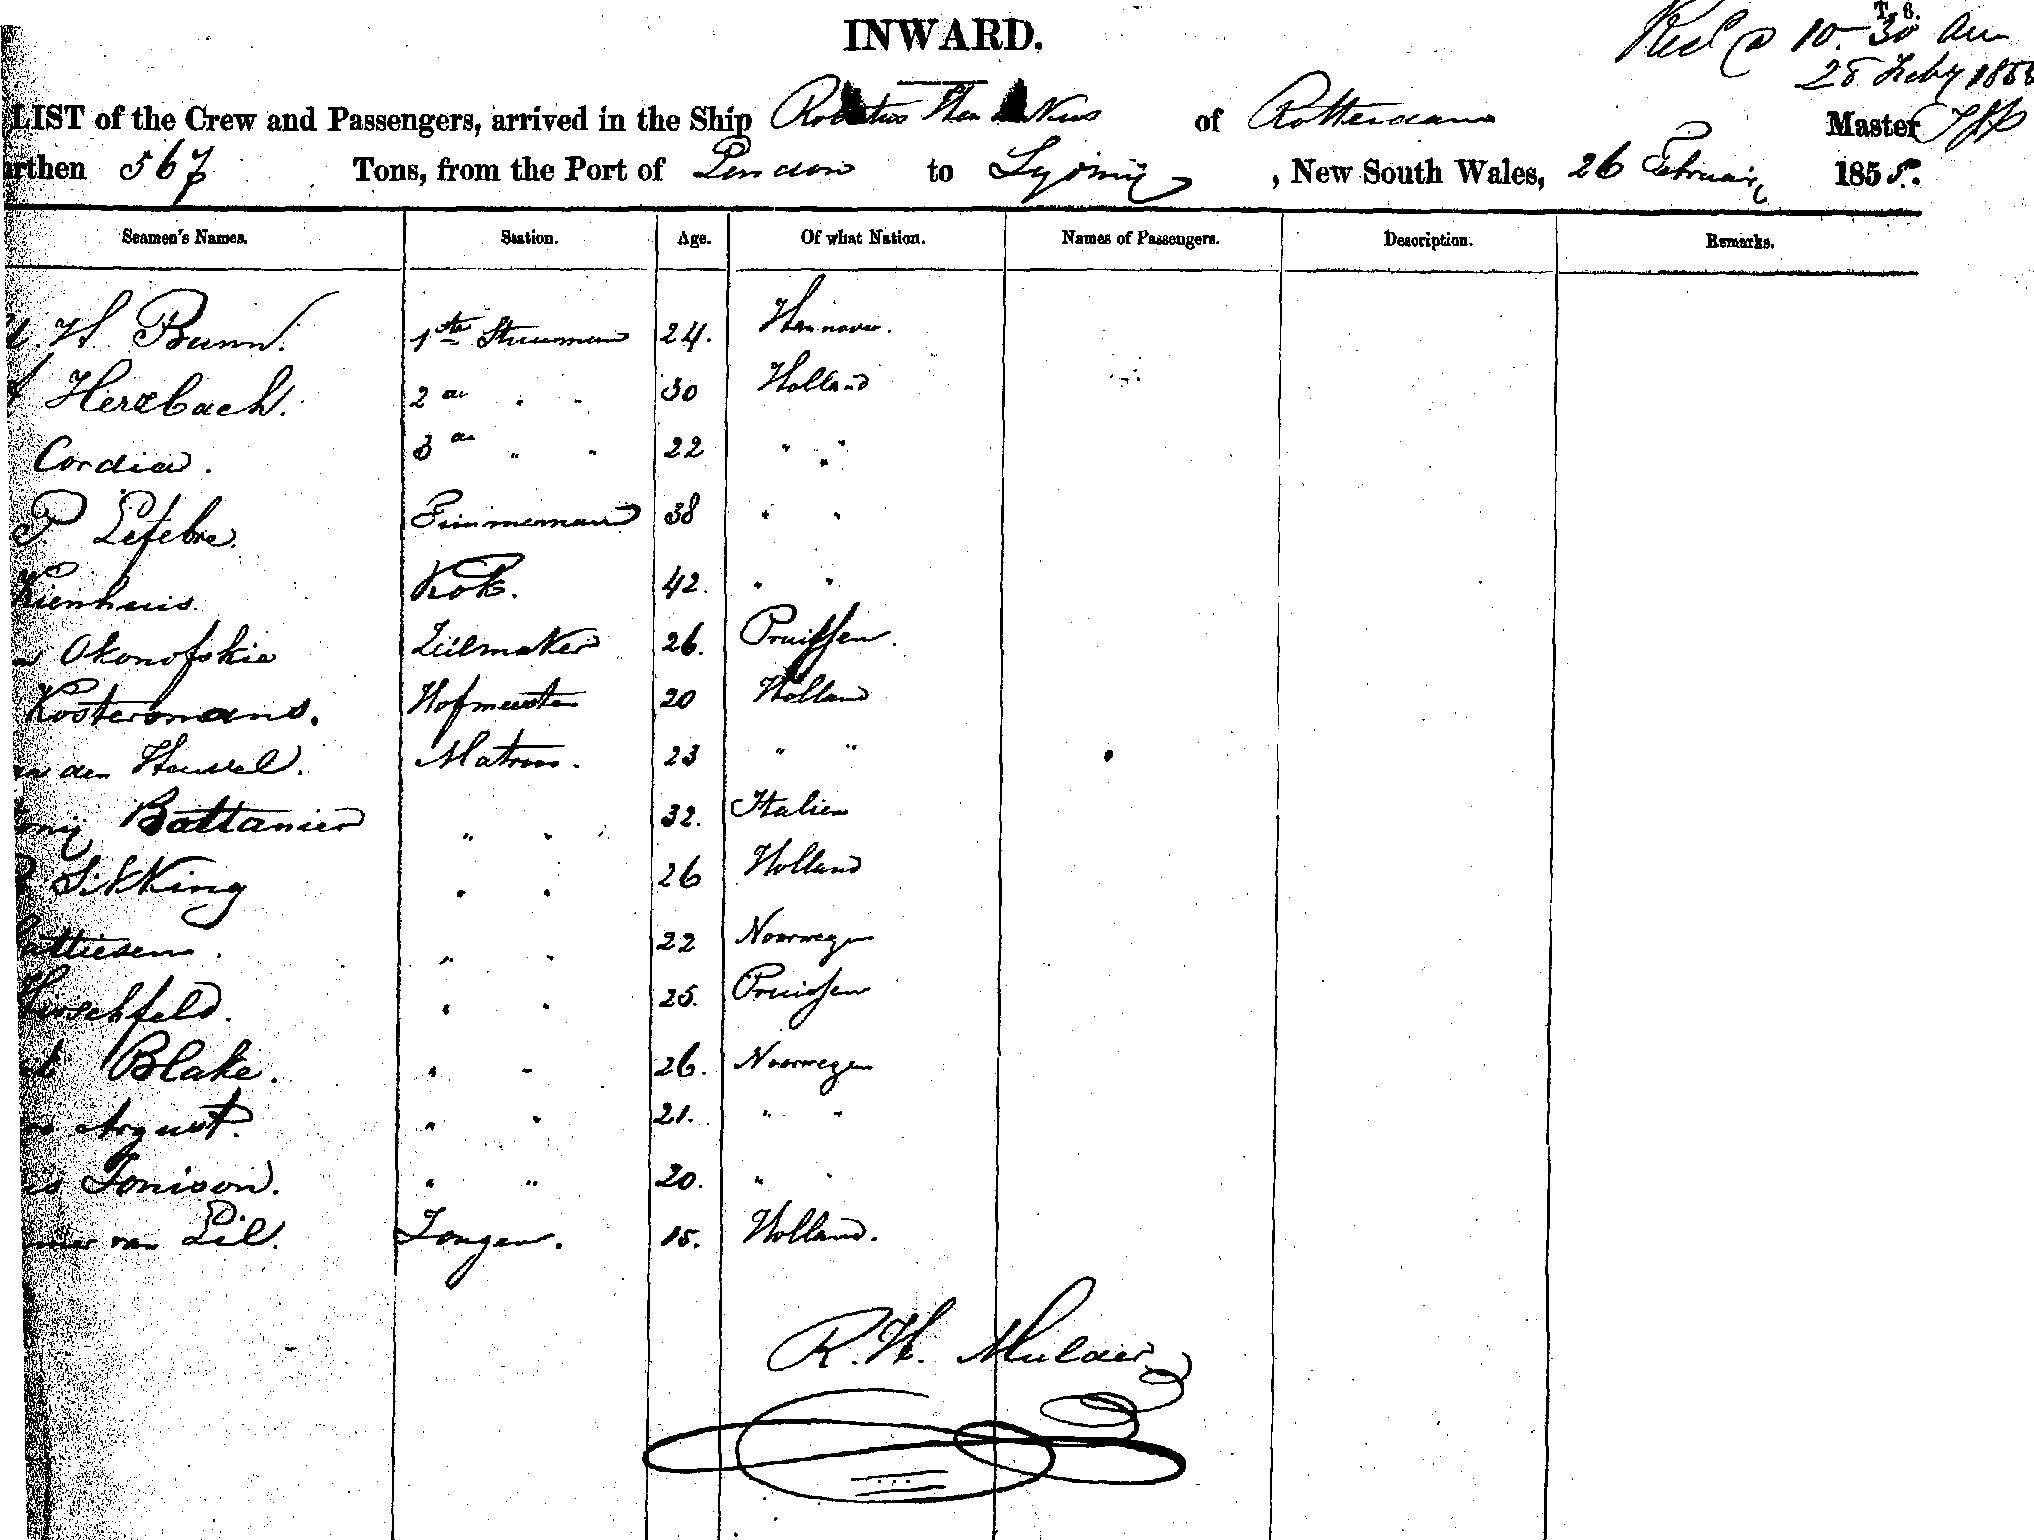 INWARD.
T. 6.
Recd @ 10.30 Am
28 Feby 1855
LIST of the Crew and Passengers, arrived in the Ship of Rotterdam Master
rthen 567 Tons, from the Port of London to Sydney, New South Wales, 26 Februarij 1855.
Seamen's Names. Station. Age. Of what Nation. Names of Passengers. Description. Remarks.
H Bunn. 1ste Stuurman 24. Hannover.
Herzbach. 2de " " 30 Holland
Cordia. 3de " " 22 " "
P Lefebre. Timmerman 38 " "
Kienhuis. Kok. 42. " "
Okonofskie Zeilmaker 26. Pruissen.
Kostermans. Hofmeester 20 Holland
den Heuvel. Matroos. 23 " "
ony Battanier " " 32. Italien
Sikking " " 26 Holland
attiesen. " " 22 Noorwegen
Hirschfeld. " " 25. Pruissen
Blake. " " 26. Noorwegen
August. " " 21. " "
is Tonison. " " 20. " "
van Lil. Jongen. 15. Holland.
R. H. Mulder